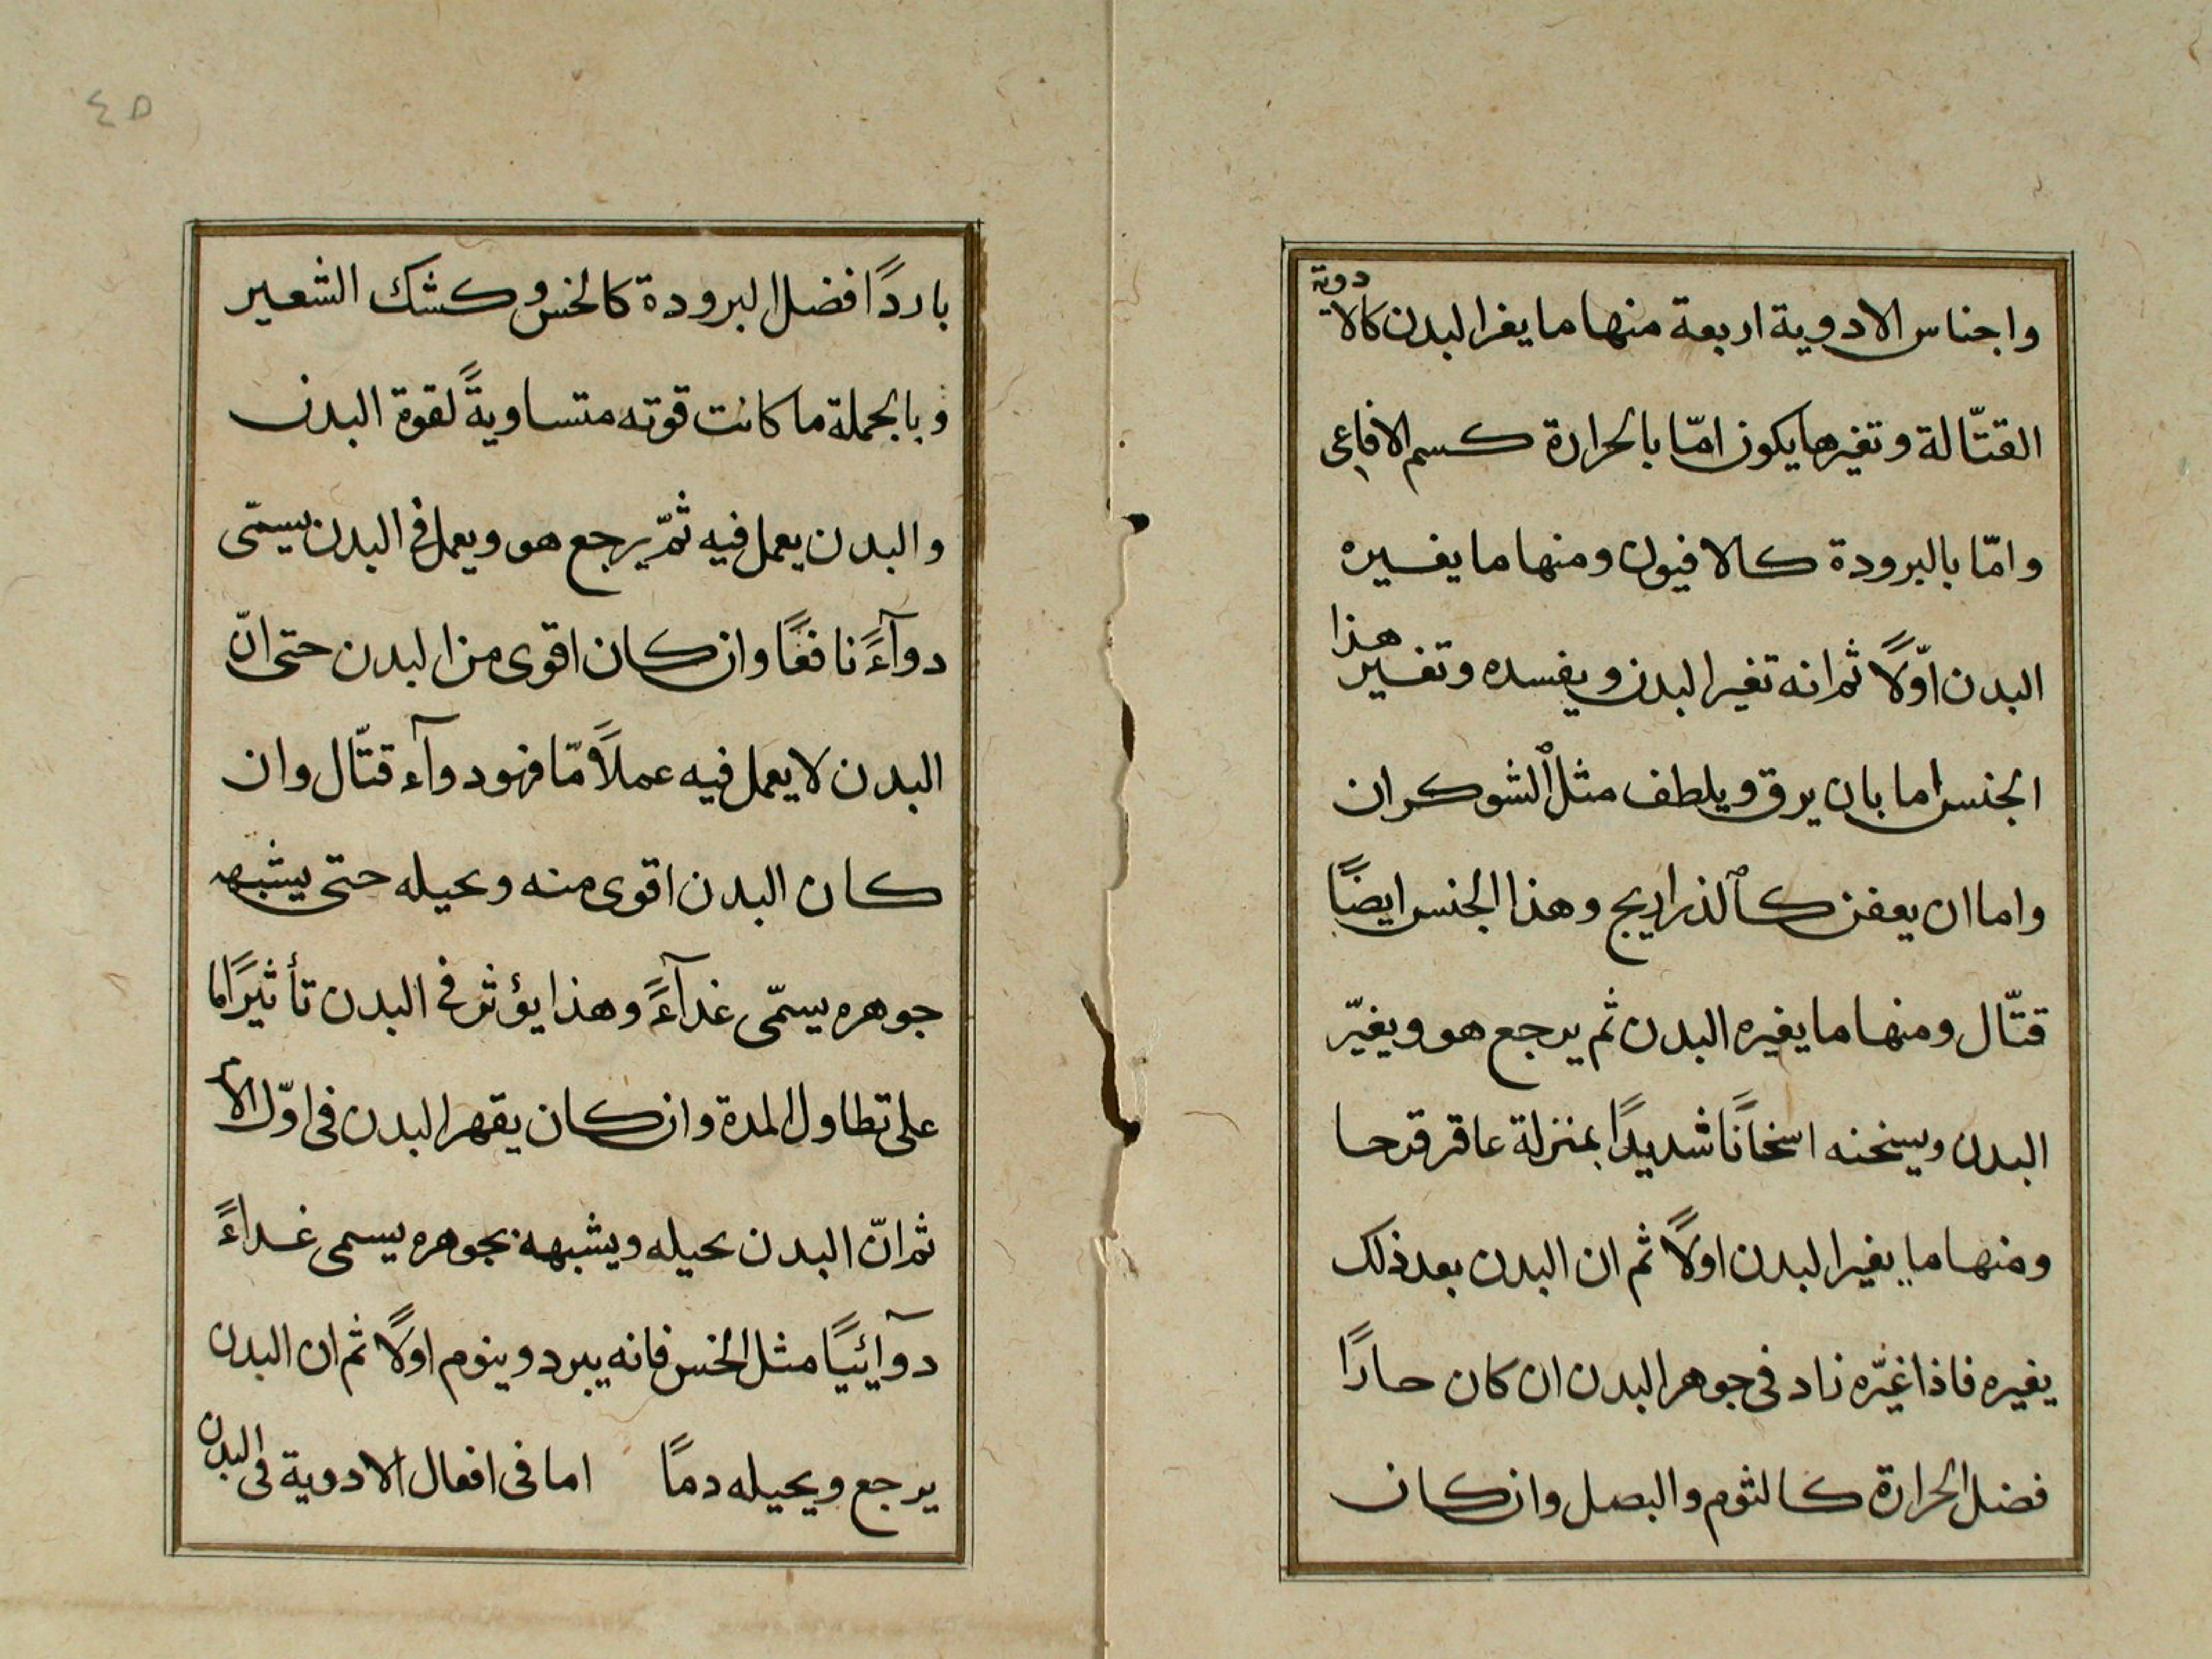 واجناس الادوية اربعة منها ما يغر البدن كالادوية
القتّالة وتغيرها يكون امّا بالحرارة كسم الافاعى
وامّا بالبرودة كالافيون ومنها ما يغيره
البدن اوّلاً ثم انه تغير البدن ويفسده وتغير هذا
الجنس اما بان يرق ويلطف مثل الشوكران
واما ان يعفن كالذراريج وهذا الجنس ايضًا
قتّال ومنها ما يغيره البدن ثم يرجع هو ويغيّر
البدن ويسخنه اسخانًا شديدًا بمنزلة عاقر قرحا
ومنها ما يغير البدن اولاً ثم ان البدن بعد ذلك
يغيره فاذا غيّره زاد فى جوهر البدن ان كان حارًا
فضل الحرارة كالثوم والبصل وان كان
٤٥
باردًا فضل البرودة كالخس وكشك الشعير
وبالجملة ما كانت قوته متساويةً لقوة البدن
والبدن يعمل فيه ثمّ يرجع هو ويعمل فى البدن يسمّى
دوآءً نافعًا وان كان اقوى من البدن حتى انّ
البدن لا يعمل فيه عملاً مّا فهو دوآء قتّال وان
كان البدن اقوى منه وحيله حتى يشبهه
جوهره يسمّى غدآءً وهذا يؤثر فى البدن تأثيرًا ما
على تطاول المدة وان كان يقهر البدن فى اوّل الامر
ثم انّ البدن حيله ويشبهه بجوهره يسمى غداءً
دوآئيًا مثل الخس فانه يبرد وينوم اولاً ثم ان البدن
يرجع ويحيله دمًا اما فى افعال الادوية فى البدن